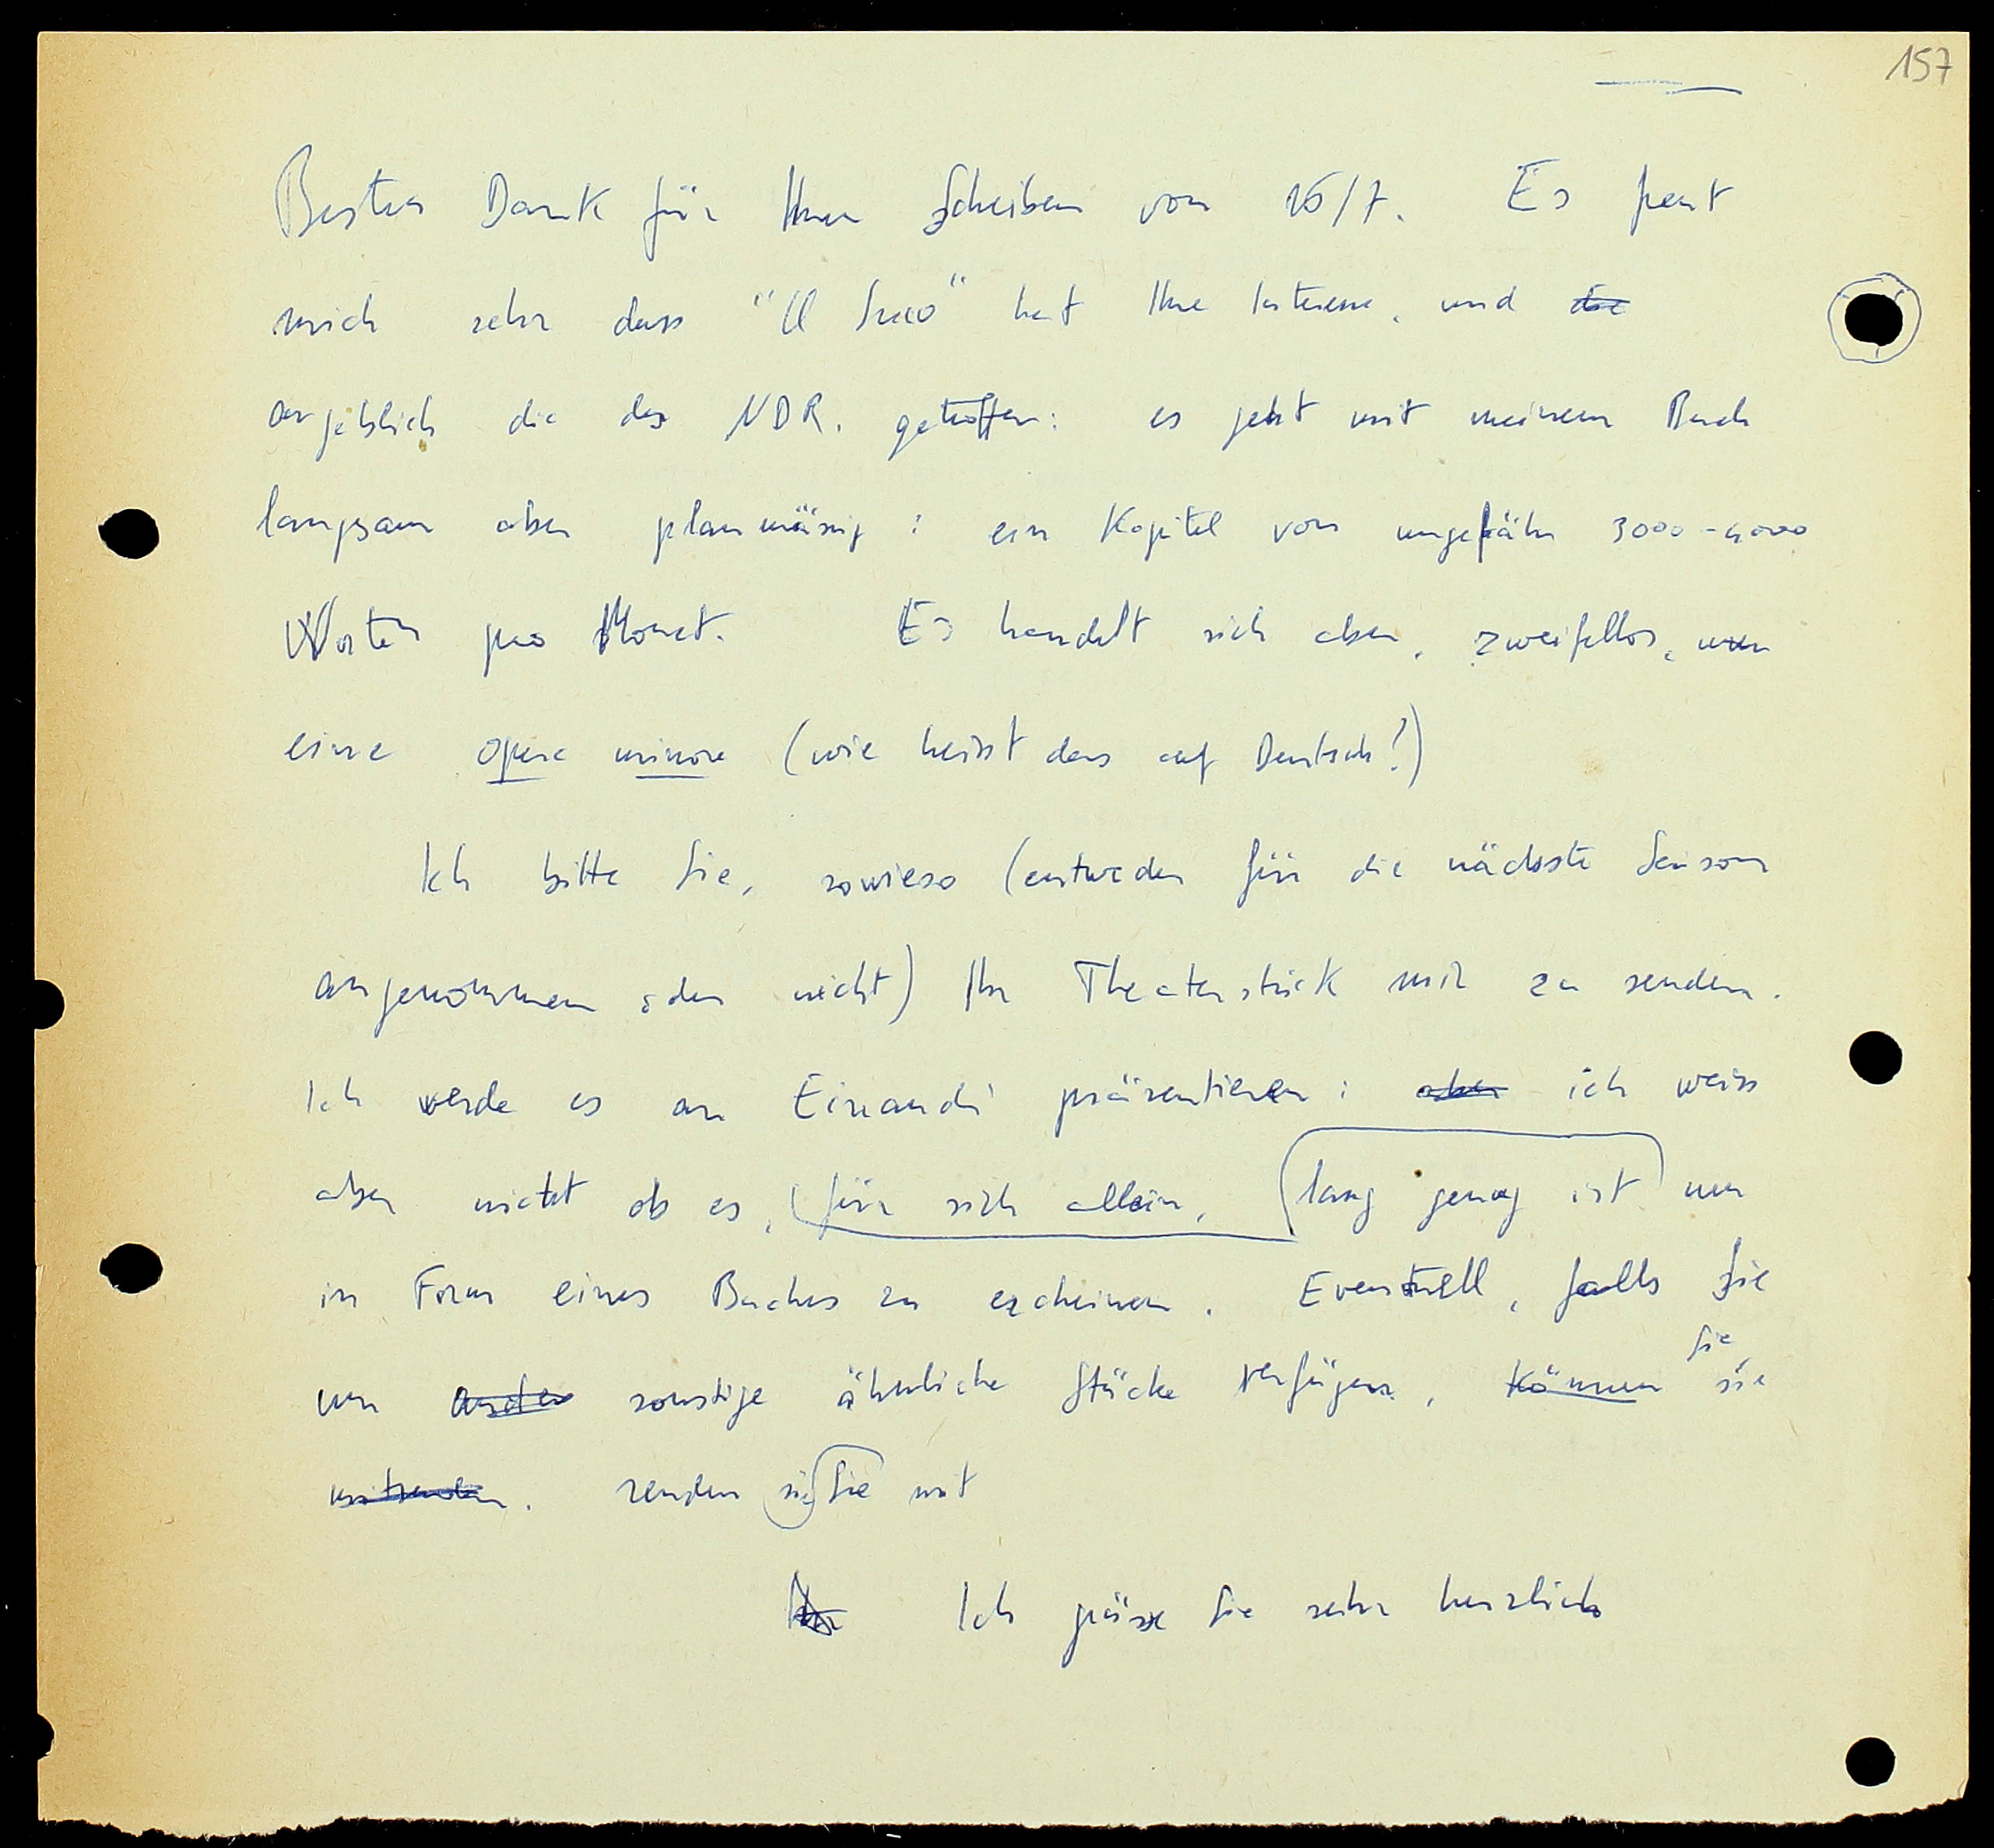 157
Besten Dank für Ihren Schreiben von 16/7. Es freut
mich sehr dass "Il Sireo" hat Ihre Interesse, und die
angeblich die des NDR. getroffen: es geht mit meinem Buch
langsam aber planmässig: ein Kapitel von ungefähr 3000-4000
Worten pro Monat. Es handelt sich aber, zweifellos, um
eine opera minore (wie heisst das auf Deutsch?)
Ich bitte Sie, sowieso (entweder für die nächste Saison
angenommen oder nicht) Ihr Theaterstück mir zu senden.
Ich werde es an Einaudi präsentieren: aber ich weiss
aber nicht ob es, für sich allein, lang genug ist um
in Form eines Buches zu erscheinen. Eventuell, falls Sie
Sie
um ander sonstige ähnliche Stücke verfügen, können sie
mitsenden. senden sie Sie mit
Ich grüsse Sie sehr herzlich